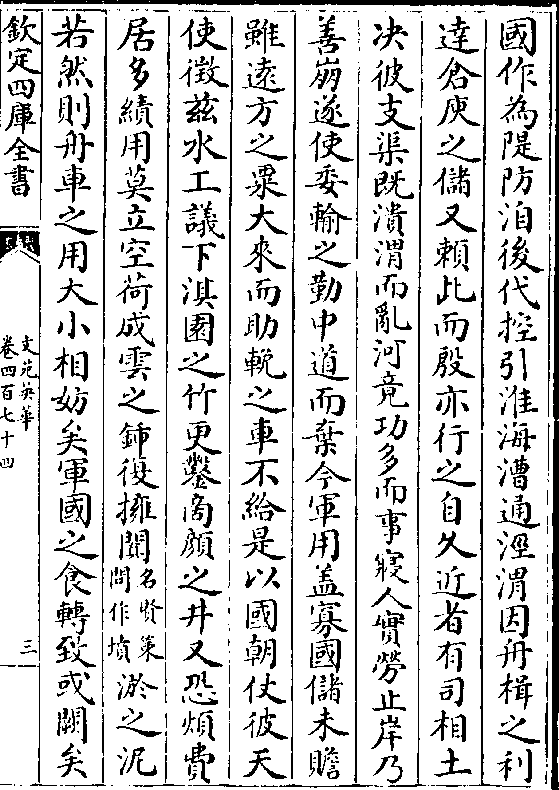 國作為隄防洎後代控引淮海漕通涇渭因舟楫之利
達倉庾之儲又賴此而殷亦行之自久近者有司相土
决彼支渠既潰渭而亂河竟功多而事寝人實勞止岸乃
善崩遂使委輸之勤中道而棄今軍用蓋寡國儲未贍
雖遠方之粟大來而助輓之車不給是以國朝仗彼天
使徵兹水工議下淇園之竹更鑿啇顔之井又恐煩費
居多績用莫立空荷成雲之鍤復擁閼名賢策問作墳淤之泥
若然則舟車之用大小相妨矣軍國之食轉致或闕矣
欽定四庫全書
文苑英華
卷四百七十四
三